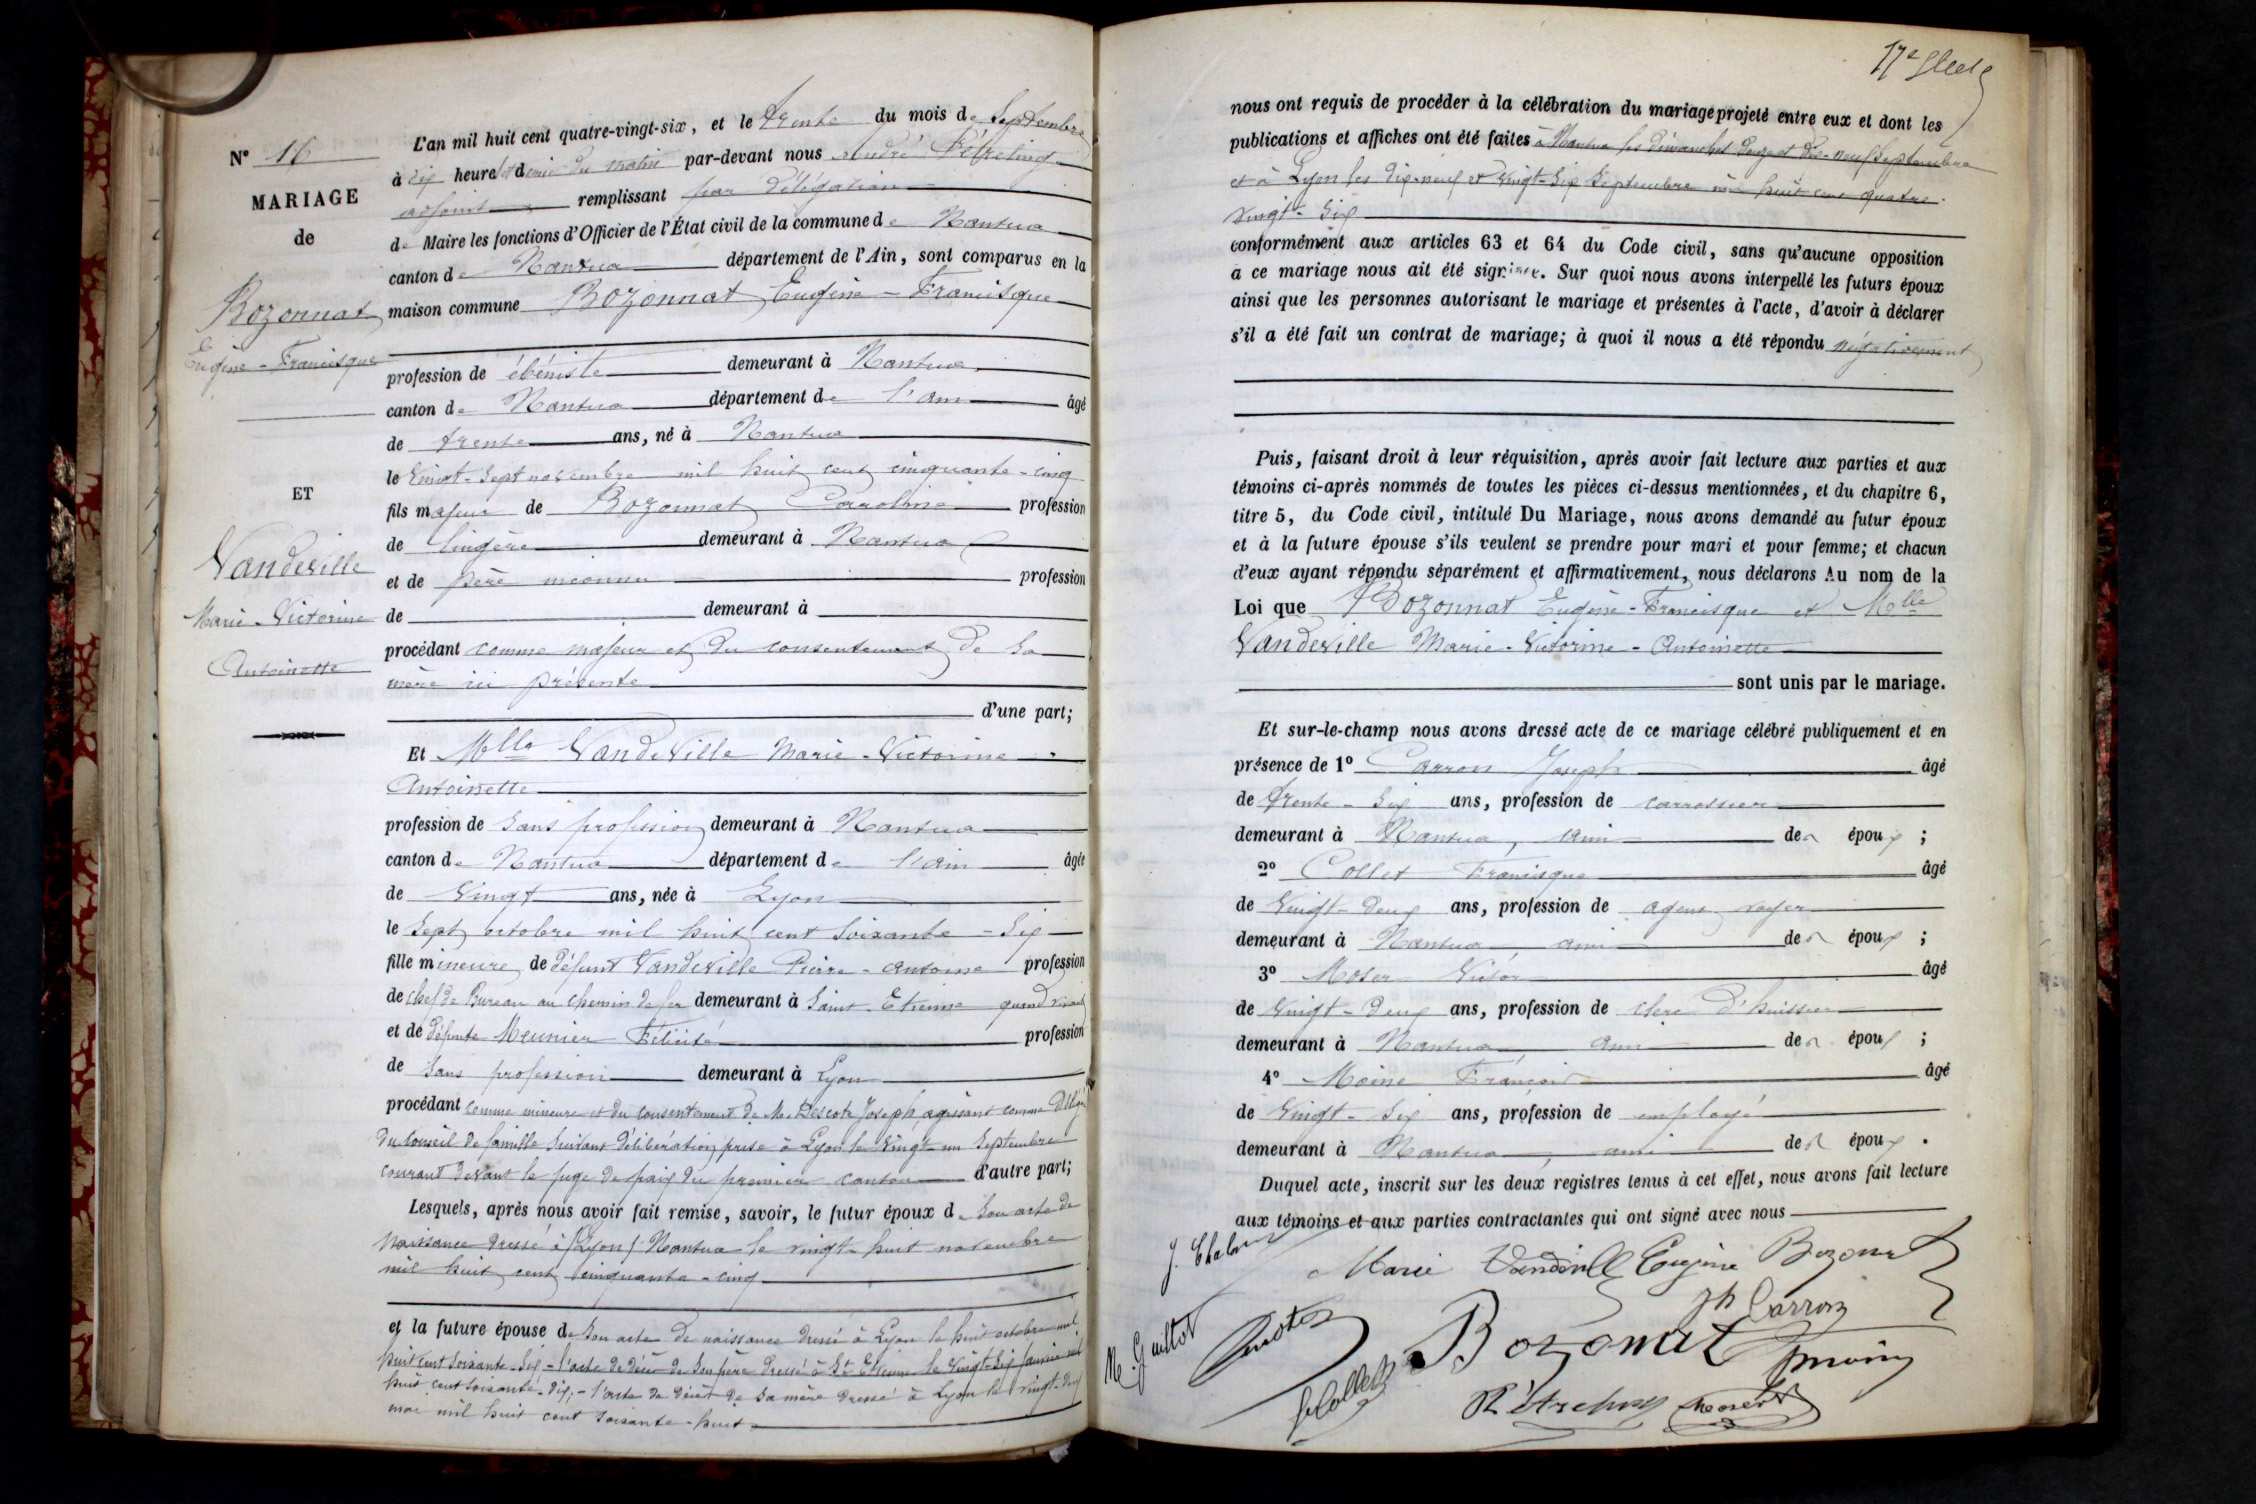 N° 16
MARIAGE
de
Bozonnat
Eugène - Francisque
ET
Vandeville
Marie - Victorine
Antoinette
L'an mil huit cent quatre-vingt-six, et le trente du mois de Septembre
à dix heures et demie du matin par-devant nous André
adjoint remplissant par délégation
de Maire les fonctions d'Officier de l'État civil de la commune de Nantua
canton de Nantua département de l'Ain, sont comparus en la
maison commune Bozonnat Eugène - Francisque
profession de ébéniste demeurant à Nantua
canton de Nantua département de l'ain âgé
de trente ans, né à Nantua
le Vingt-Sept novembre mil huit cent cinquante-cinq
fils majeur de Bozonnat Carroline profession
de lingère demeurant à Nantua
et de père inconnu profession
de demeurant à
procédant comme majeur et du consentement de Sa
mère ici présente
d'une part;
Et Melle Vandeville Marie - Victorine
Antoinette
profession de Sans profession demeurant à Nantua
canton de Nantua département de l'ain âgée
de Vingt ans, née à Lyon
le Sept octobre mil huit cent Soixante - Six
fille mineure de défunt Vandeville Pierre - Antoine profession
de chef de Bureau au chemin de fer demeurant à Saint-Etienne quand vivait
et de défunte Meunier Félicité profession
de Sans profession demeurant à Lyon
procédant comme mineure et du consentement de M. Descote Joseph, agissant comme Délégué
du Conseil de famille Suivant délibération prise à Lyon le Vingt-un Septembre
courant devant le juge de paix du premier canton d'autre part;
Lesquels, après nous avoir fait remise, savoir, le futur époux de Son acte de
naissance dressé à (Lyon) Nantua le vingt-huit novembre
mil huit cent cinquante-cinq
et la future épouse de Son acte de naissance dressé à Lyon le huit octobre mil
huit cent soixante-Six - l'acte de décès de Son père dressé à St Etienne le Vingt-Six Janvier mil
huit cent soixante-dix; - l'acte de décès de Sa mère dressé à Lyon le vingt-deux
mai mil huit cent soixante-huit
nous ont requis de procéder à la célébration du mariage projeté entre eux et dont les
publications et affiches ont été faites à Nantua les dimanches douze et dix-neuf Septembre
et à Lyon les dix-neuf et Vingt-Six Septembre mil huit cent quatre
vingt-Six
conformément aux articles 63 et 64 du Code civil, sans qu'aucune opposition
à ce mariage nous ait été signifiée. Sur quoi nous avons interpellé les futurs époux
ainsi que les personnes autorisant le mariage et présentes à l'acte, d'avoir à déclarer
s'il a été fait un contrat de mariage; à quoi il nous a été répondu négativement
Puis, faisant droit à leur réquisition, après avoir fait lecture aux parties et aux
témoins ci-après nommés de toutes les pièces ci-dessus mentionnées, et du chapitre 6,
titre 5, du Code civil, intitulé Du Mariage, nous avons demandé au futur époux
et à la future épouse s'ils veulent se prendre pour mari et pour femme; et chacun
d'eux ayant répondu séparément et affirmativement, nous déclarons Au nom de la
Loi que Bozonnat Eugène - Francisque et Melle
Vandeville Marie - Victorine - Antoinette
sont unis par le mariage.
Et sur-le-champ nous avons dressé acte de ce mariage célébré publiquement et en
présence de 1° Carron Joseph âgé
de trente - Six ans, profession de carrossier
demeurant à Nantua, ami des époux ;
2° Collet Francisque âgé
de Vingt-deux ans, profession de agent voyer
demeurant à Nantua, ami des époux ;
3° Moser Victor âgé
de Vingt-deux ans, profession de clerc d'huissier
demeurant à Nantua, ami des époux ;
4° Moine François âgé
de Vingt-Six ans, profession de employé
demeurant à Nantua, ami des époux .
Duquel acte, inscrit sur les deux registres tenus à cet effet, nous avons fait lecture
aux témoins et aux parties contractantes qui ont signé avec nous
Marie Vandeville Eugène Bozonnat
Jh Carron
M. Guillot
Bozonnat
F. Collet
Moine
Moser V